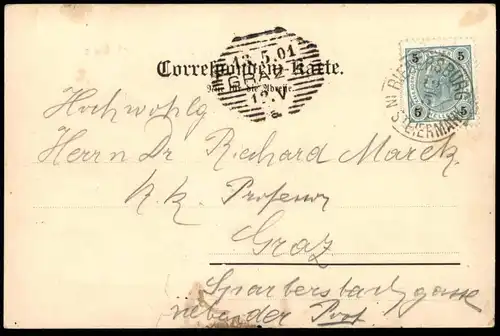 13.5.01
Correspondenz-Karte.
Nur für die Adresse.
GRAZ
13.V
a
5 5
5 5
RIEGERSBURG IN STEIERMARK
Hochwohlg
Herrn Dr Richard Marek
kk. Professor
Graz
Sparbersbachgasse
neben der Post